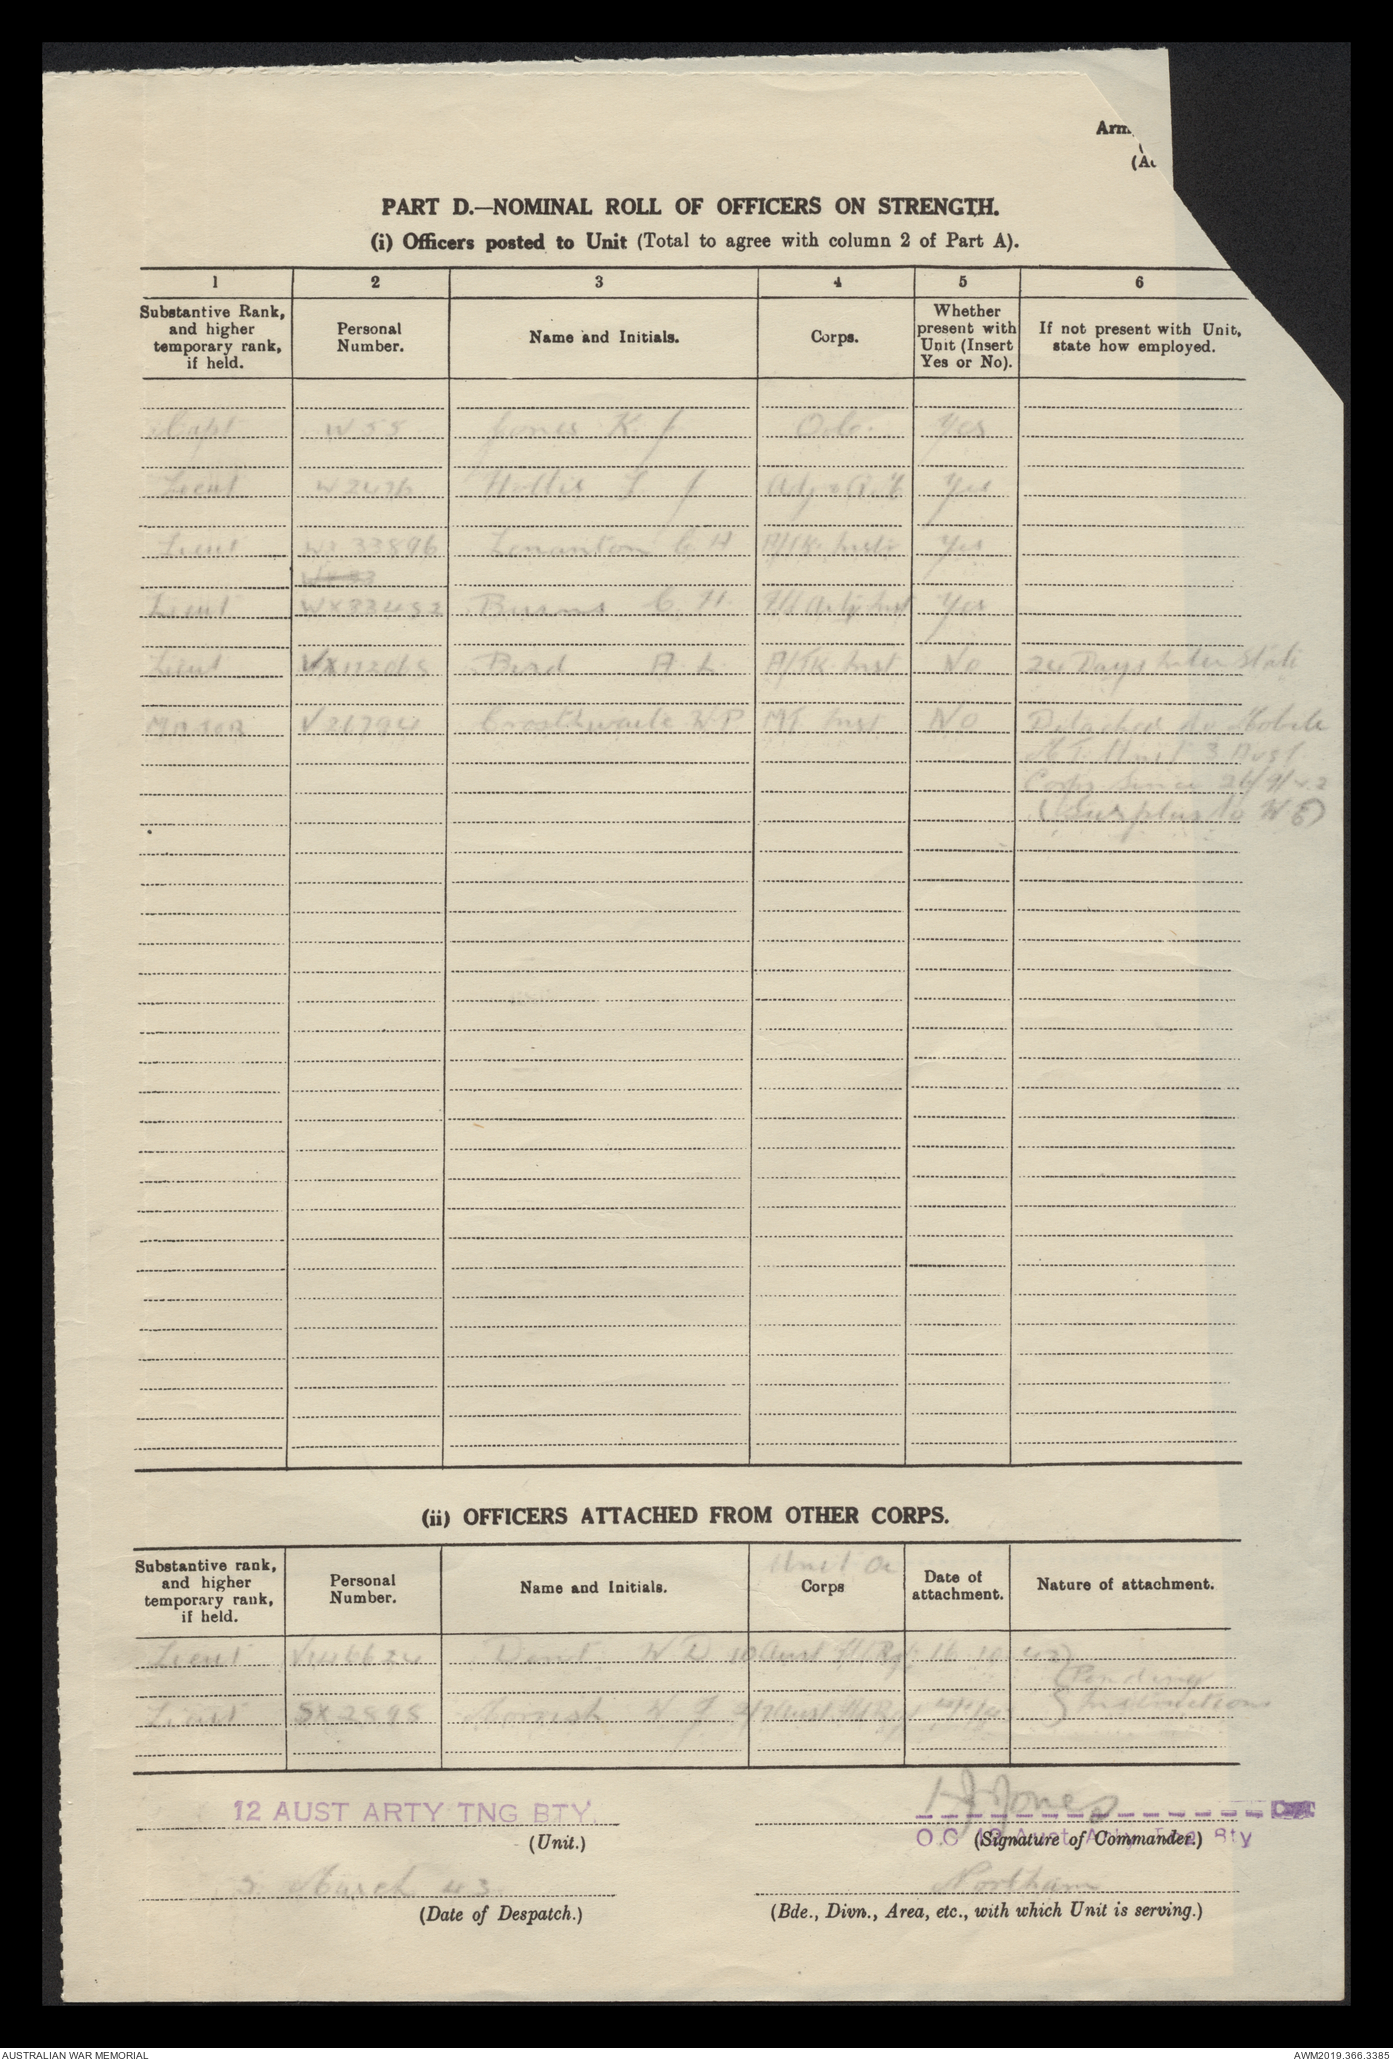 PART D.—NOMINAL ROLL OF OFFICERS ON STRENGTH.
(i) Officers posted to Unit (Total to agree with column 2 of Part A).
1 2 3 4 5 6
Substantive Rank, and higher temporary rank, if held. Personal Number. Name and Initials. Corps. Whether present with Unit (Insert Yes or No). If not present with Unit, state how employed.
Capt W55 Jones K J O.C. Yes
Lieut W2476 Hollis J Adj & Q.M Yes
Lieut WX33896 C H A/Tk Instr Yes
Lieut WX33452 Burns C. H. Fld Arty Inst Yes
Lieut VX113065 Bird A. L. A/Tk Inst No 24 Days Inter State
MAJOR V26794 Crosthwaite W P MT Inst No Detached to Mobile
M.T. Unit 3 Aust
Corps Since 26/9/42
(Surplus to WE)
(ii) OFFICERS ATTACHED FROM OTHER CORPS.
Unit or
Substantive rank, and higher temporary rank, if held. Personal Number. Name and Initials. Corps Date of attachment. Nature of attachment.
Lieut V146624 W D 10 Aust Fld Rgt 16 10 42 Pending
Lieut SX2898 Cornish W J 2/7 Aust Fld Rgt Instructions
12 AUST ARTY TNG BTY. Jones Capt
(Unit.) O.C 12 Aust Arty Tng Bty
(Signature of Commander.)
5 March 43 Northam
(Date of Despatch.) (Bde., Divn., Area, etc., with which Unit is serving.)
AUSTRALIAN WAR MEMORIAL AWM2019.366.3385